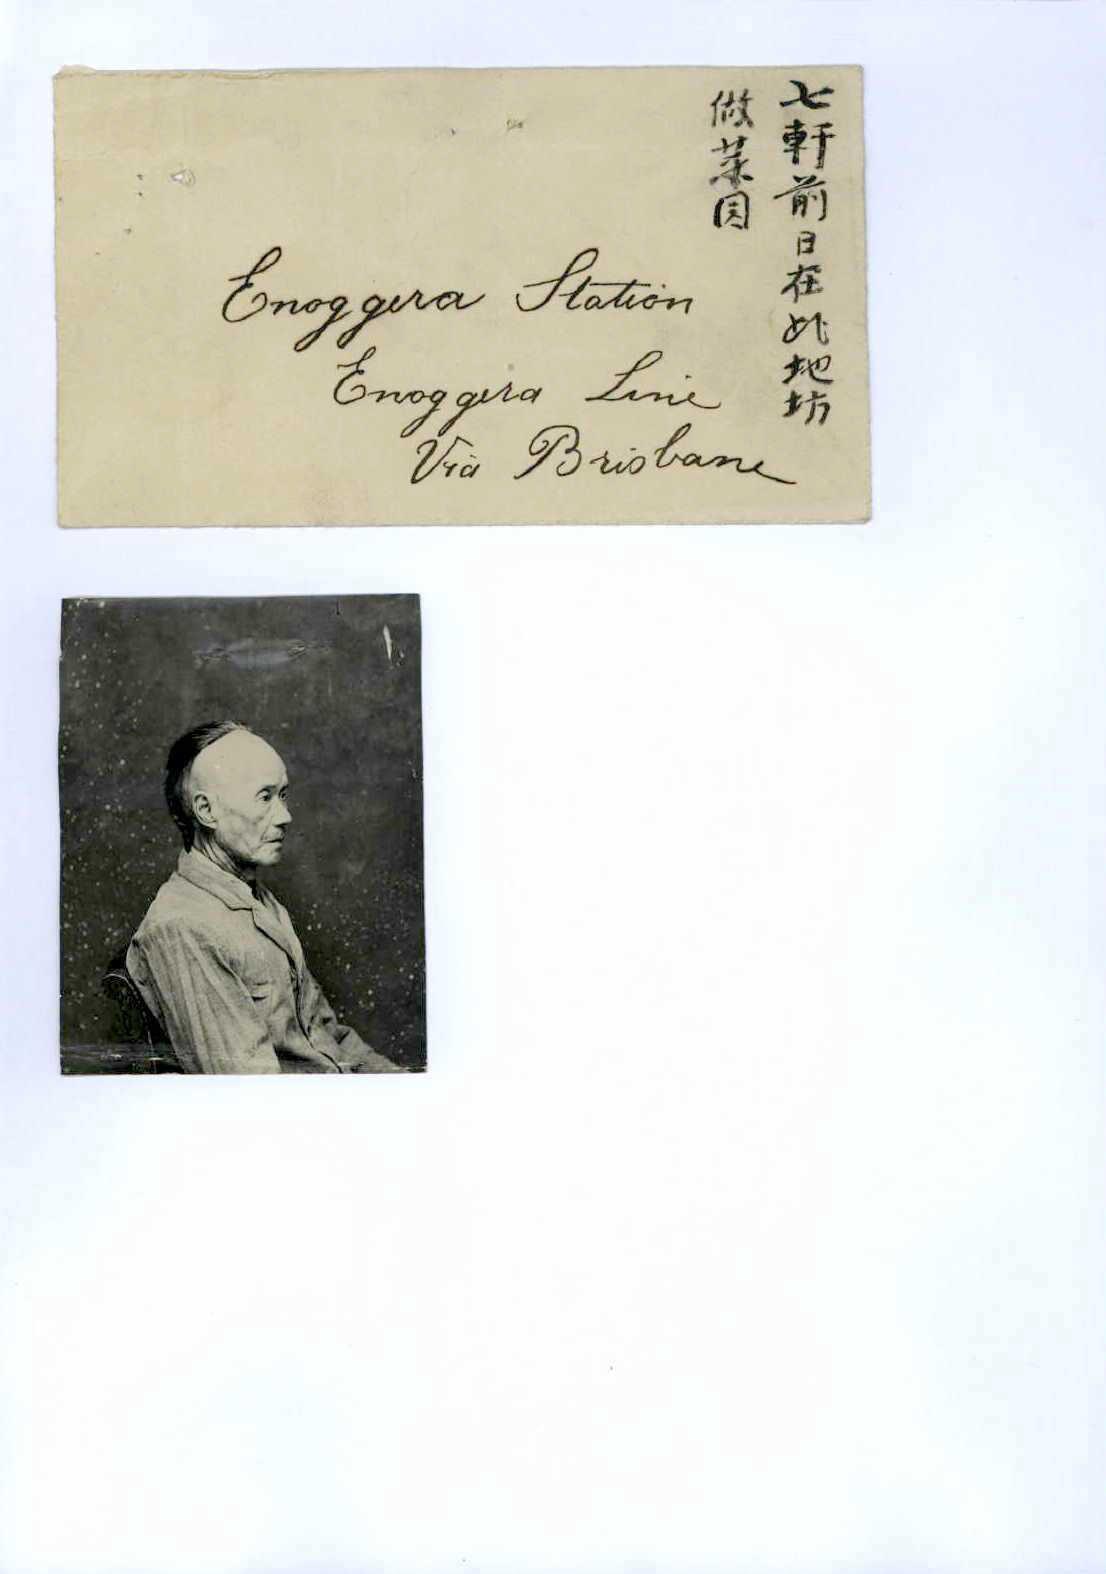 七軒前日在此地坊
做菜园
Enoggera Station
Enoggera Line
Via Brisbane